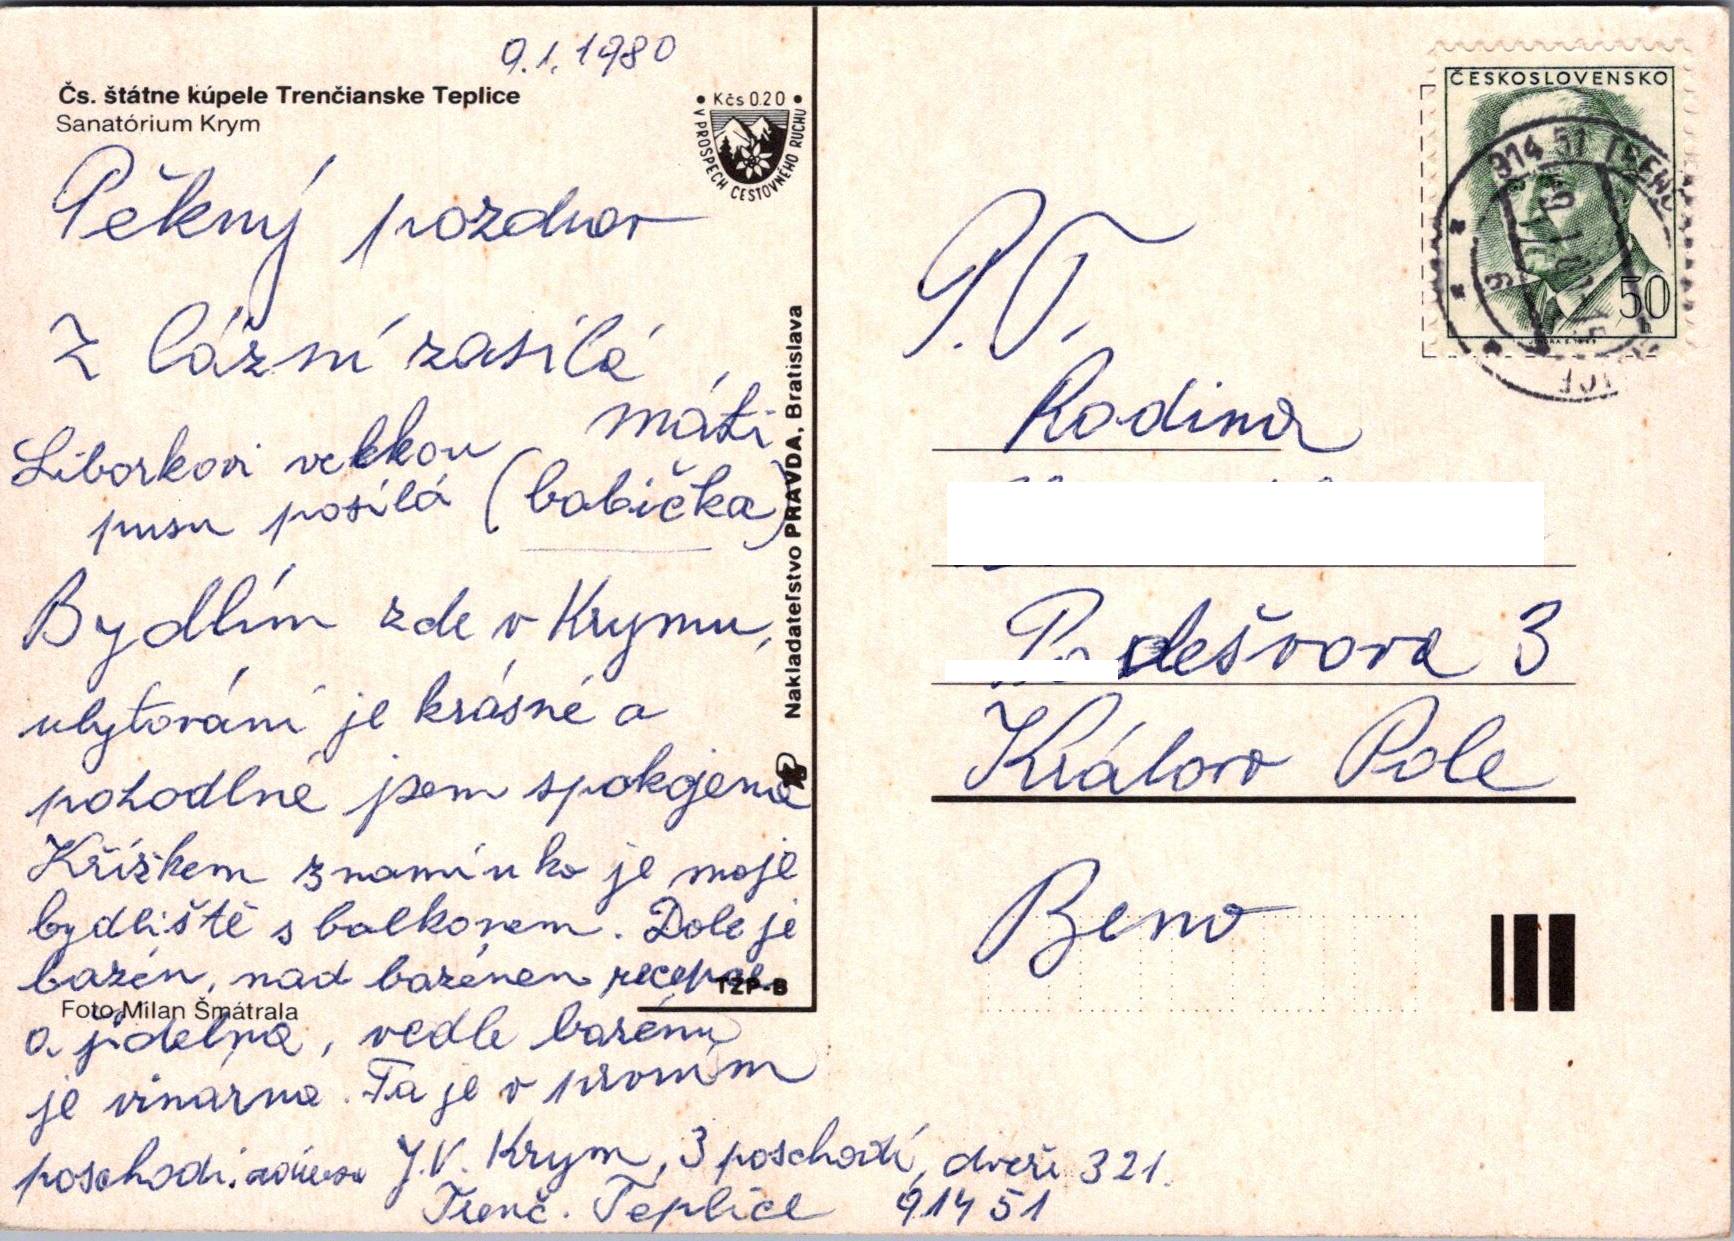 9.1.1980
Čs. štátne kúpele Trenčianske Teplice
Sanatórium Krym
• Kčs 0.20 •
V PROSPECH CESTOVNÉHO RUCHU
Pěkný pozdrav
z lázní zasílá
máti
Liborkovi velkou
pusu posílá (babička)
Bydlím zde v Krymu,
ubytování je krásné a
pohodlné jsem spokojená
Křížkem znamínko je moje
bydliště s balkonem. Dole je
bazén, nad bazénem recepce
a jídelna, vedle bazénu
je vinárna. Ta je v prvním
poschodí. adresa J.V. Krym, 3 poschodí, dveře 321.
Trenč. Teplice 914 51
Foto Milan Šmátrala
TZP-B
Nakladateľstvo PRAVDA, Bratislava
ČESKOSLOVENSKO
50
914 51 TRENČ
P.T.
Rodina
Podešvova 3
Královo Pole
Brno